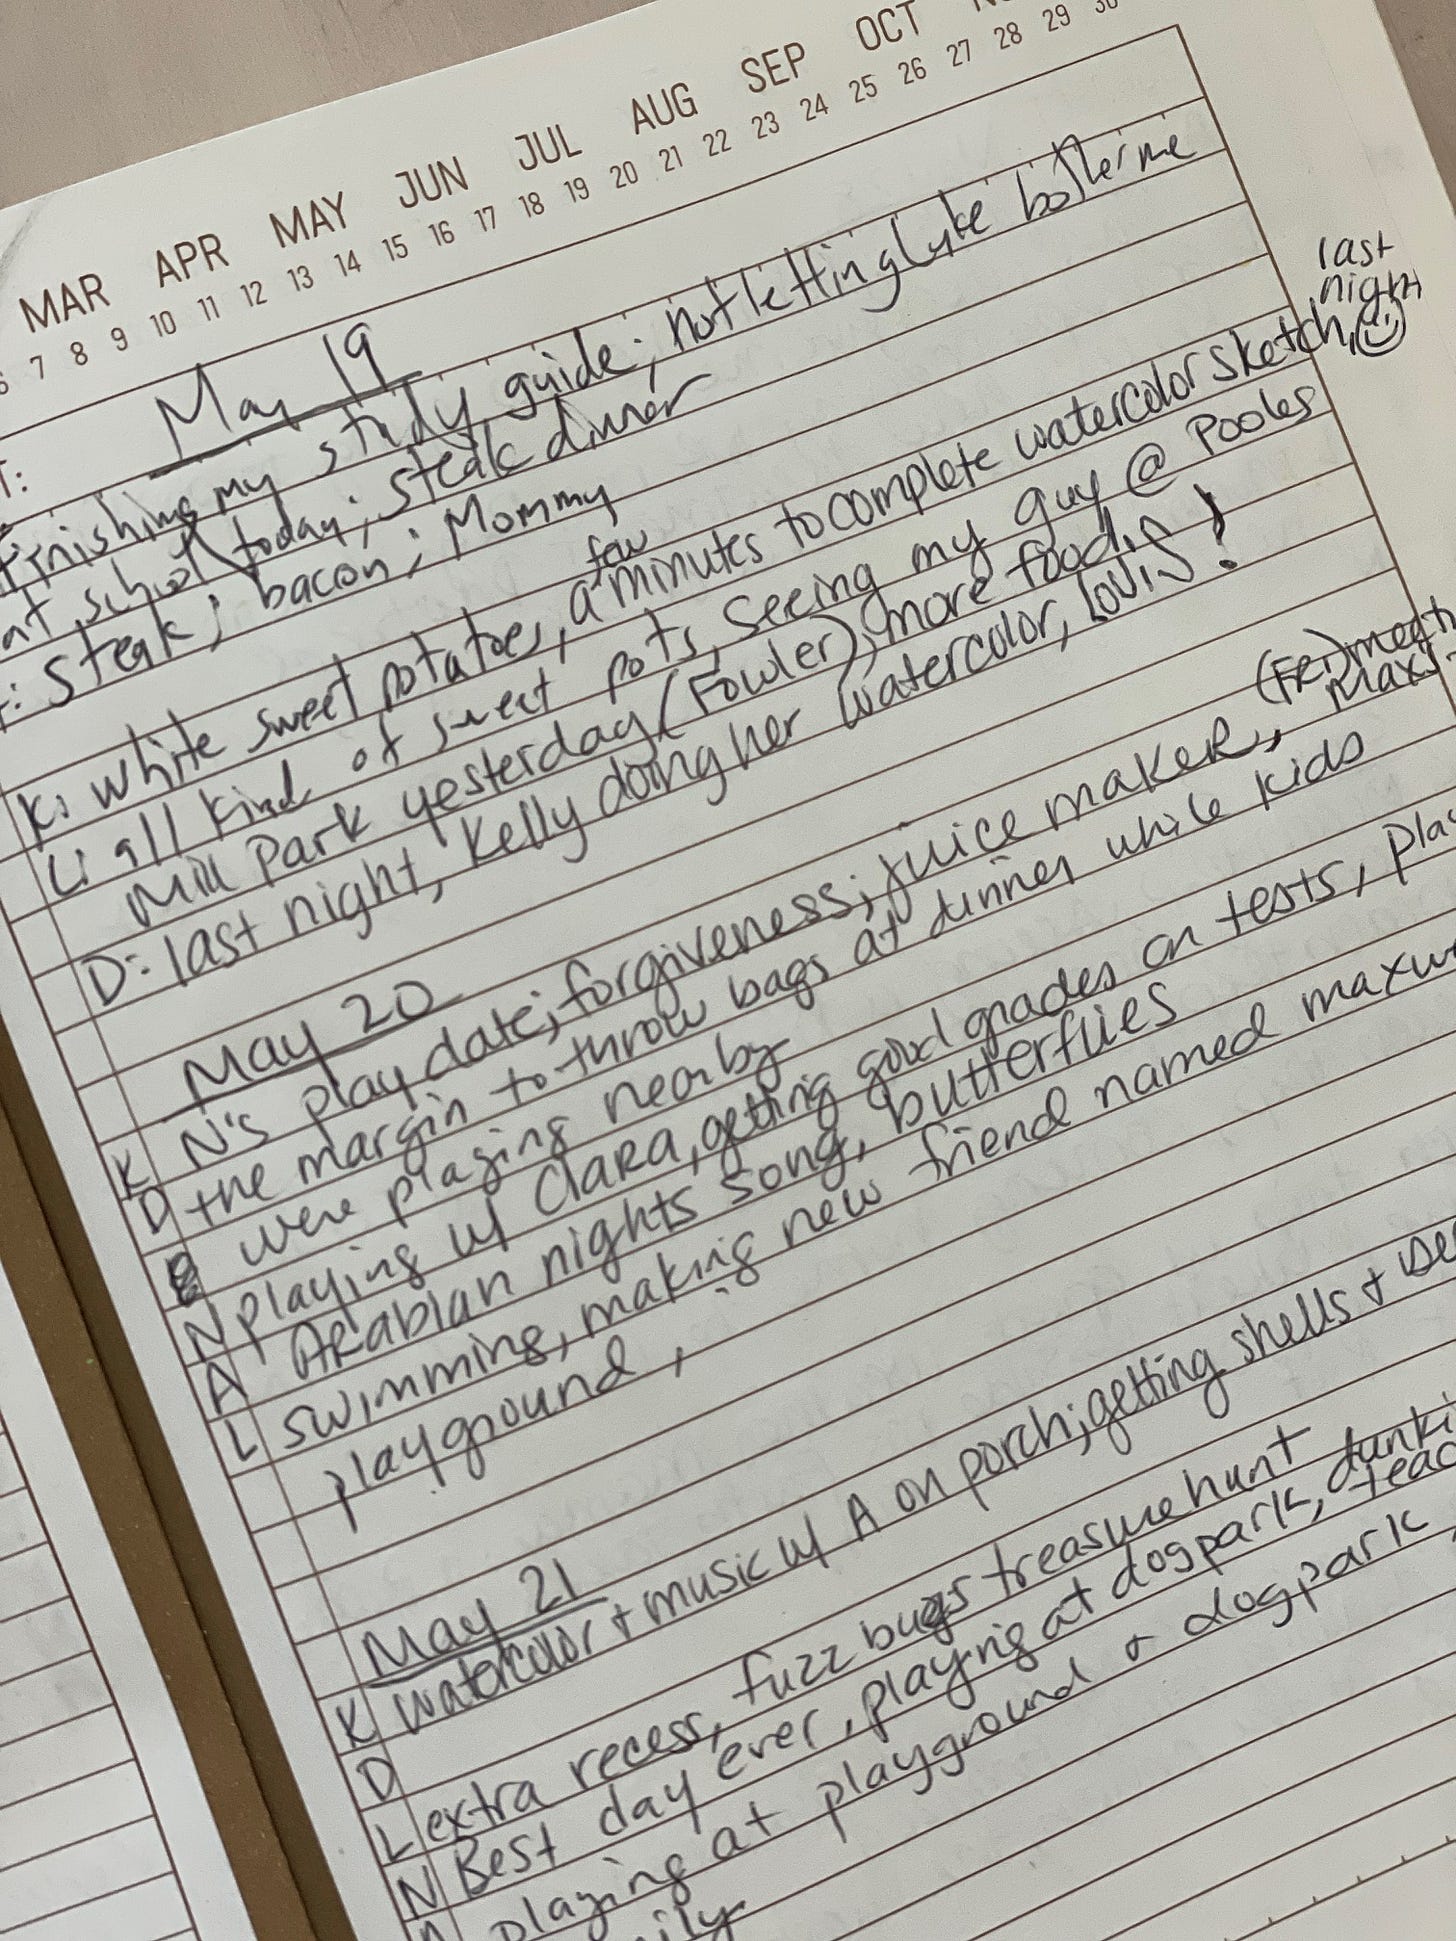 MAR APR MAY JUN JUL AUG SEP OCT
6 7 8 9 10 11 12 13 14 15 16 17 18 19 20 21 22 23 24 25 26 27 28 29 30
May 19
finishing my study guide; not letting Luke bother me
at school today; steak dinner
: steak; bacon; Mommy
K: white sweet potatoes, a few minutes to complete watercolor sketch, last night
L: all kind of sweet pots, seeing my guy @ Pooles
Mill Park yesterday (Fowler), more food.
D: last night, Kelly doing her watercolor, LOUIS!
May 20
K N's play date; forgiveness; juice maker, (Fri)
D the margin to throw bags at dinner while kids
were playing nearby
N playing w/ Clara, getting good grades on tests,
A Arabian nights song, butterflies
L swimming, making new friend named
playground,
May 21
K watercolor + music w/ A on porch; getting shells +
D
L extra recess, fuzz bugs treasure hunt
N Best day ever, playing at dogpark,
playing at playground & dogpark